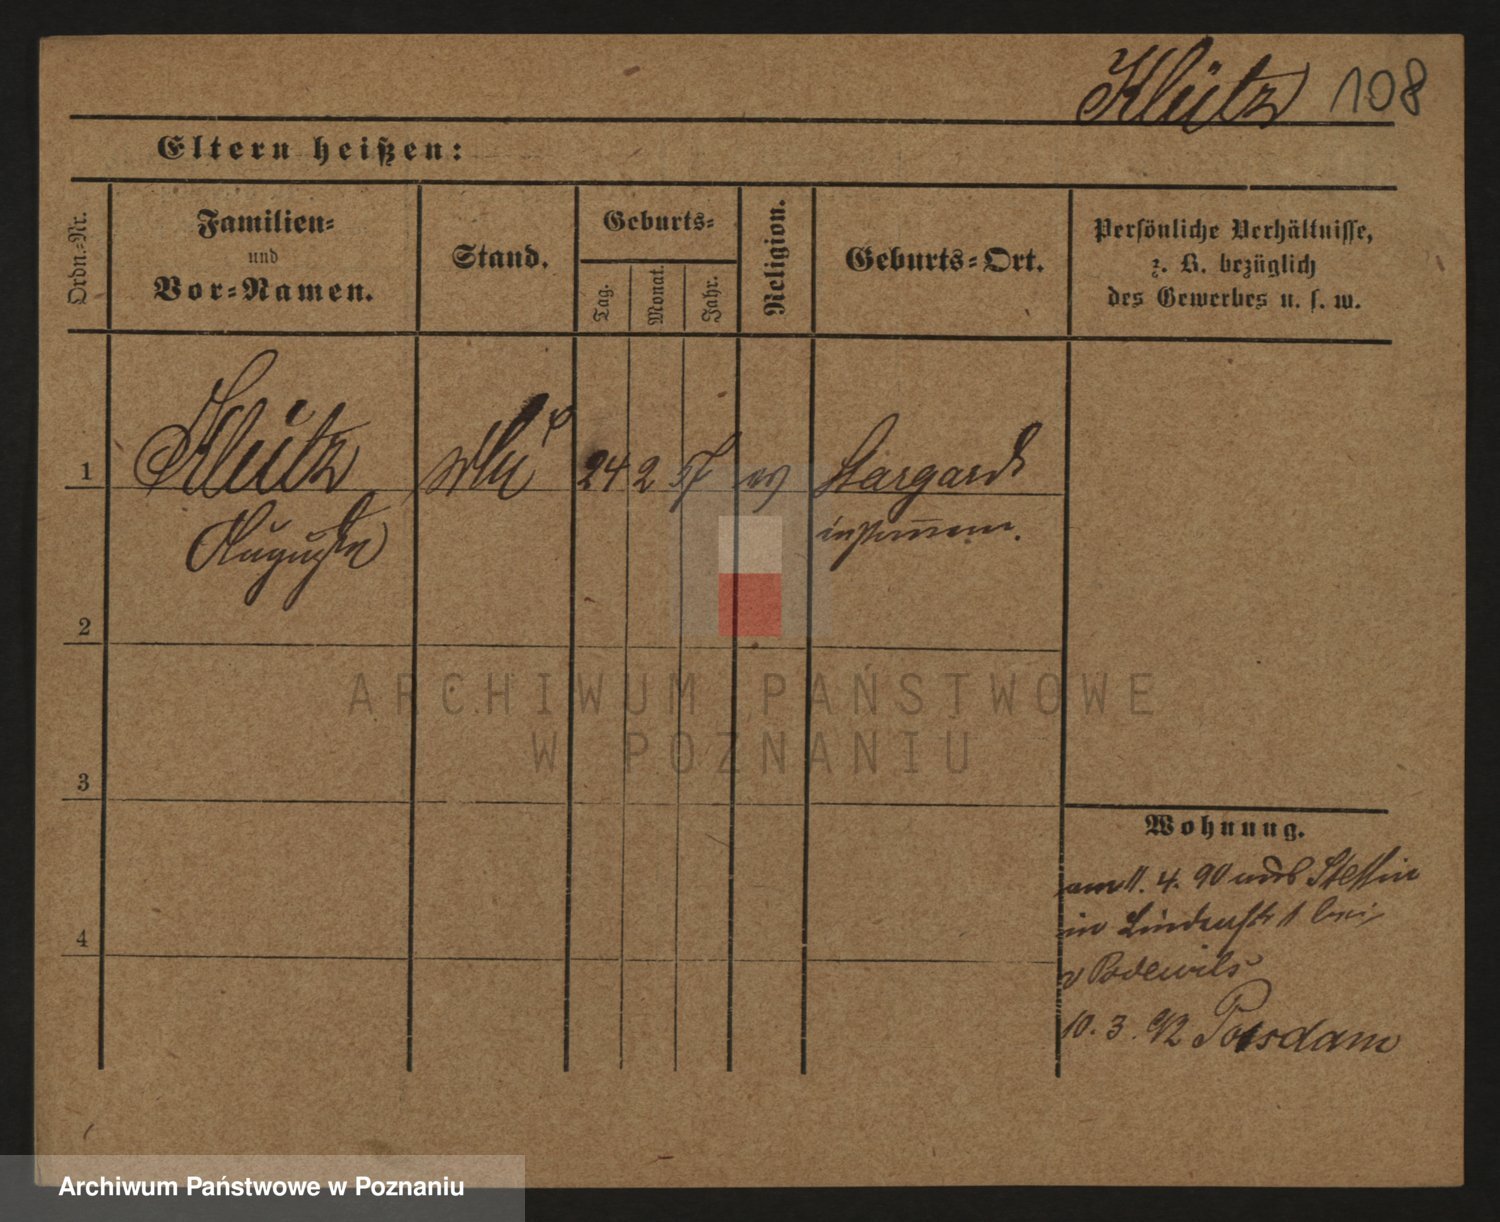 Klütz 108
Eltern heißen:
Ordn.-Nr.
Familien-
und
Vor-Namen.
Stand.
Geburts-
Tag.
Monat.
Jahr.
Religion.
Geburts-Ort.
Persönliche Verhältnisse,
z. B. bezüglich
des Gewerbes u. s. w.
1 Klütz 24 2 57 ev Stargard
Auguste in Pommern.
2
3
4
Wohnung.
am 11. 4. 90 nach Stettin
in Lindenstr 1 bei
v Podewils
10. 3. 92 Potsdam
ARCHIWUM PAŃSTWOWE
W POZNANIU
Archiwum Państwowe w Poznaniu